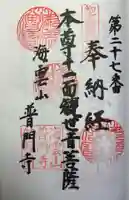 第二十七番
奉納経
本尊十一面觧世音菩薩
海雲山
普門寺